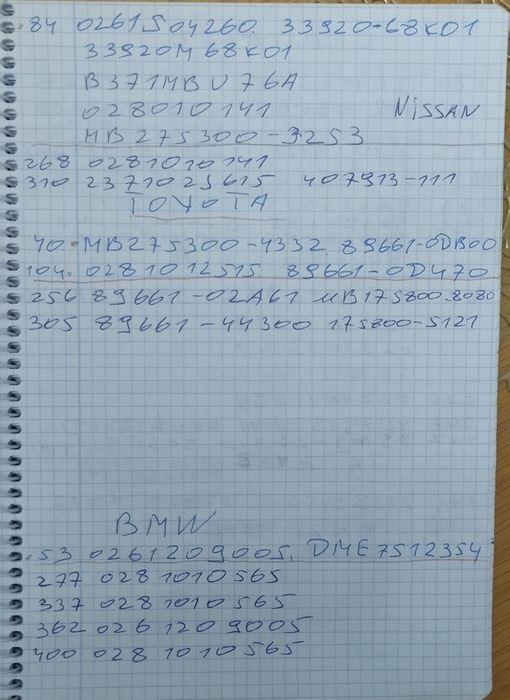 84 0261S04260. 33920-68K01
33920M68K01
B371MBU76A
028010141 NiSSAN
MB275300-3253
268 0281010141
310 2371025615 407913-111
TOYOTA
40. MB275300-4332 89661-0DB00
104. 0281012515. 89661-0D470
256 89661-02A61 MB175800-8080
305 89661-44300 175800-5121
BMW
.53 0261209005. DME7512354
277 0281010565
337 0281010565
362 0261209005
400 0281010565